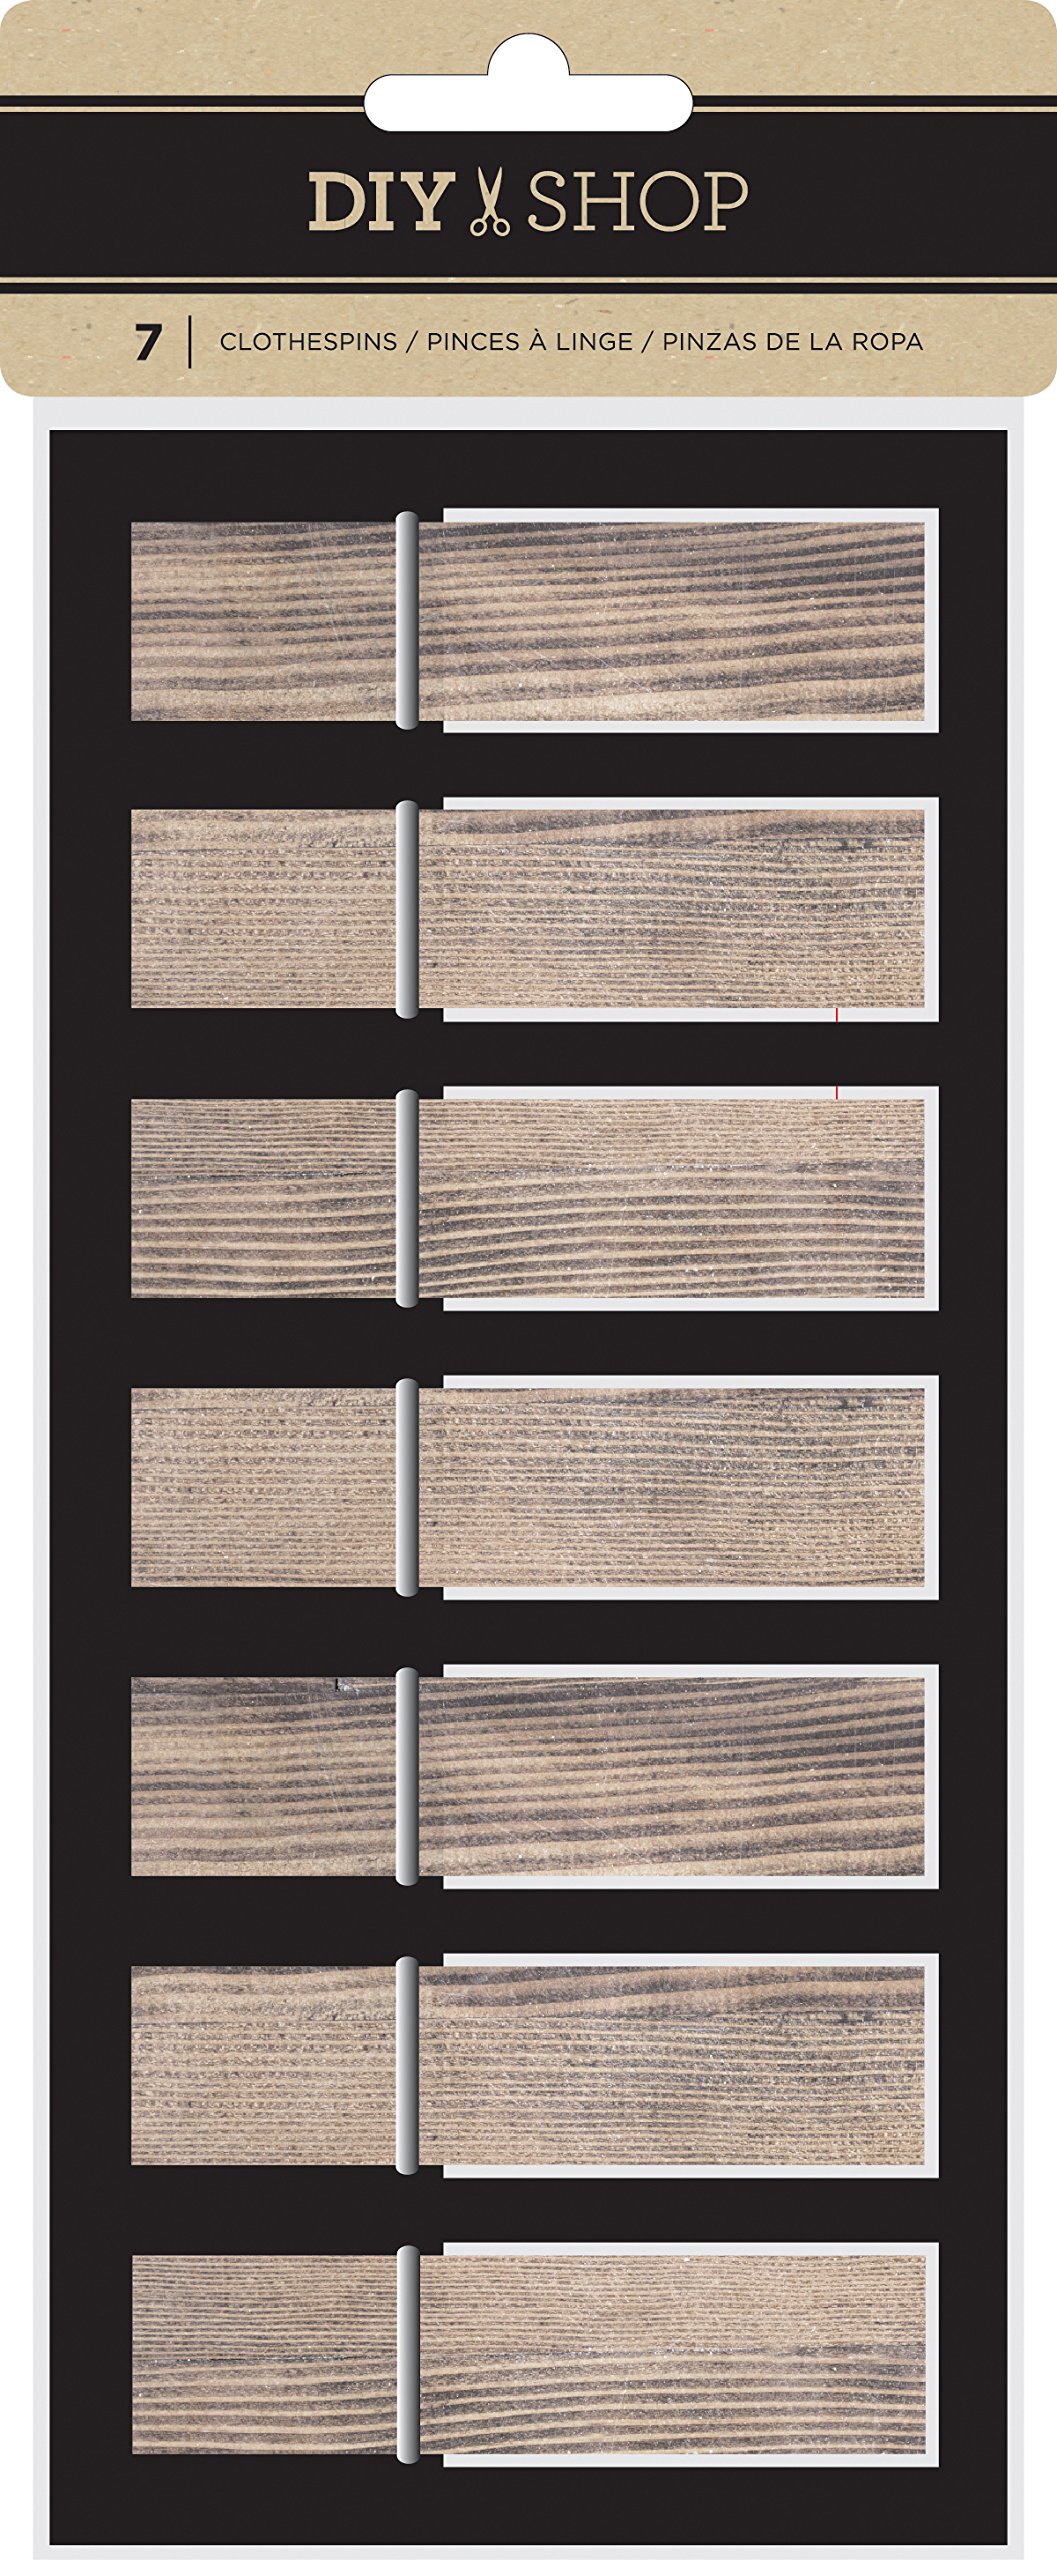 DIY SHOP
7 | CLOTHESPINS / PINCES À LINGE / PINZAS DE LA ROPA